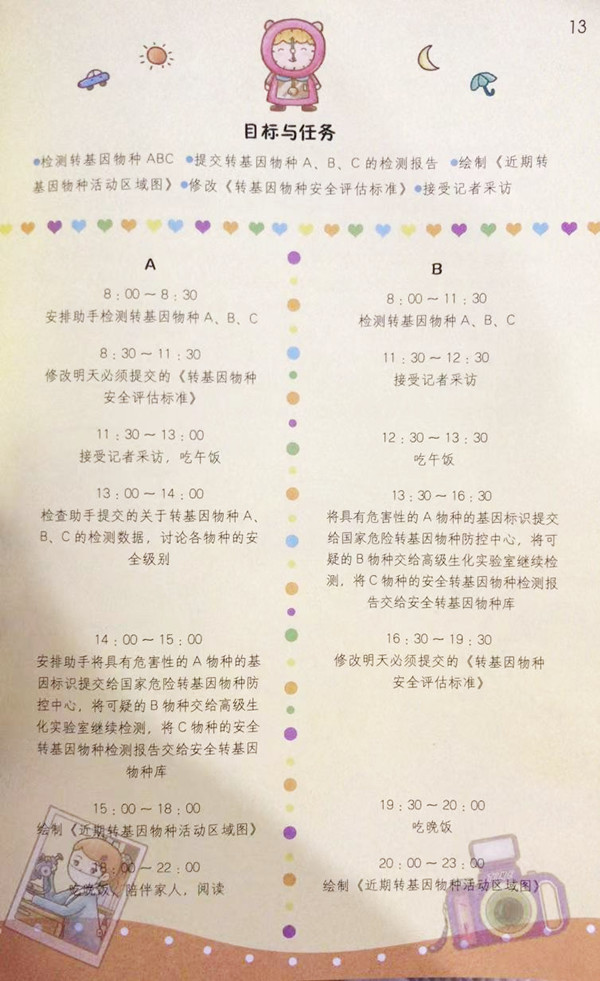 13
目标与任务
●检测转基因物种ABC ●提交转基因物种A、B、C的检测报告 ●绘制《近期转
基因物种活动区域图》●修改《转基因物种安全评估标准》●接受记者采访
A
8：00～8：30
安排助手检测转基因物种A、B、C
8：30～11：30
修改明天必须提交的《转基因物种
安全评估标准》
11：30～13：00
接受记者采访，吃午饭
13：00～14：00
检查助手提交的关于转基因物种A、
B、C的检测数据，讨论各物种的安
全级别
14：00～15：00
安排助手将具有危害性的A物种的基
因标识提交给国家危险转基因物种防
控中心，将可疑的B物种交给高级生
化实验室继续检测，将C物种的安全
转基因物种检测报告交给安全转基因
物种库
15：00～18：00
绘制《近期转基因物种活动区域图》
18：00～22：00
吃晚饭，陪伴家人，阅读
B
8：00～11：30
检测转基因物种A、B、C
11：30～12：30
接受记者采访
12：30～13：30
吃午饭
13：30～16：30
将具有危害性的A物种的基因标识提交
给国家危险转基因物种防控中心，将可
疑的B物种交给高级生化实验室继续检
测，将C物种的安全转基因物种检测报
告交给安全转基因物种库
16：30～19：30
修改明天必须提交的《转基因物种
安全评估标准》
19：30～20：00
吃晚饭
20：00～23：00
绘制《近期转基因物种活动区域图》